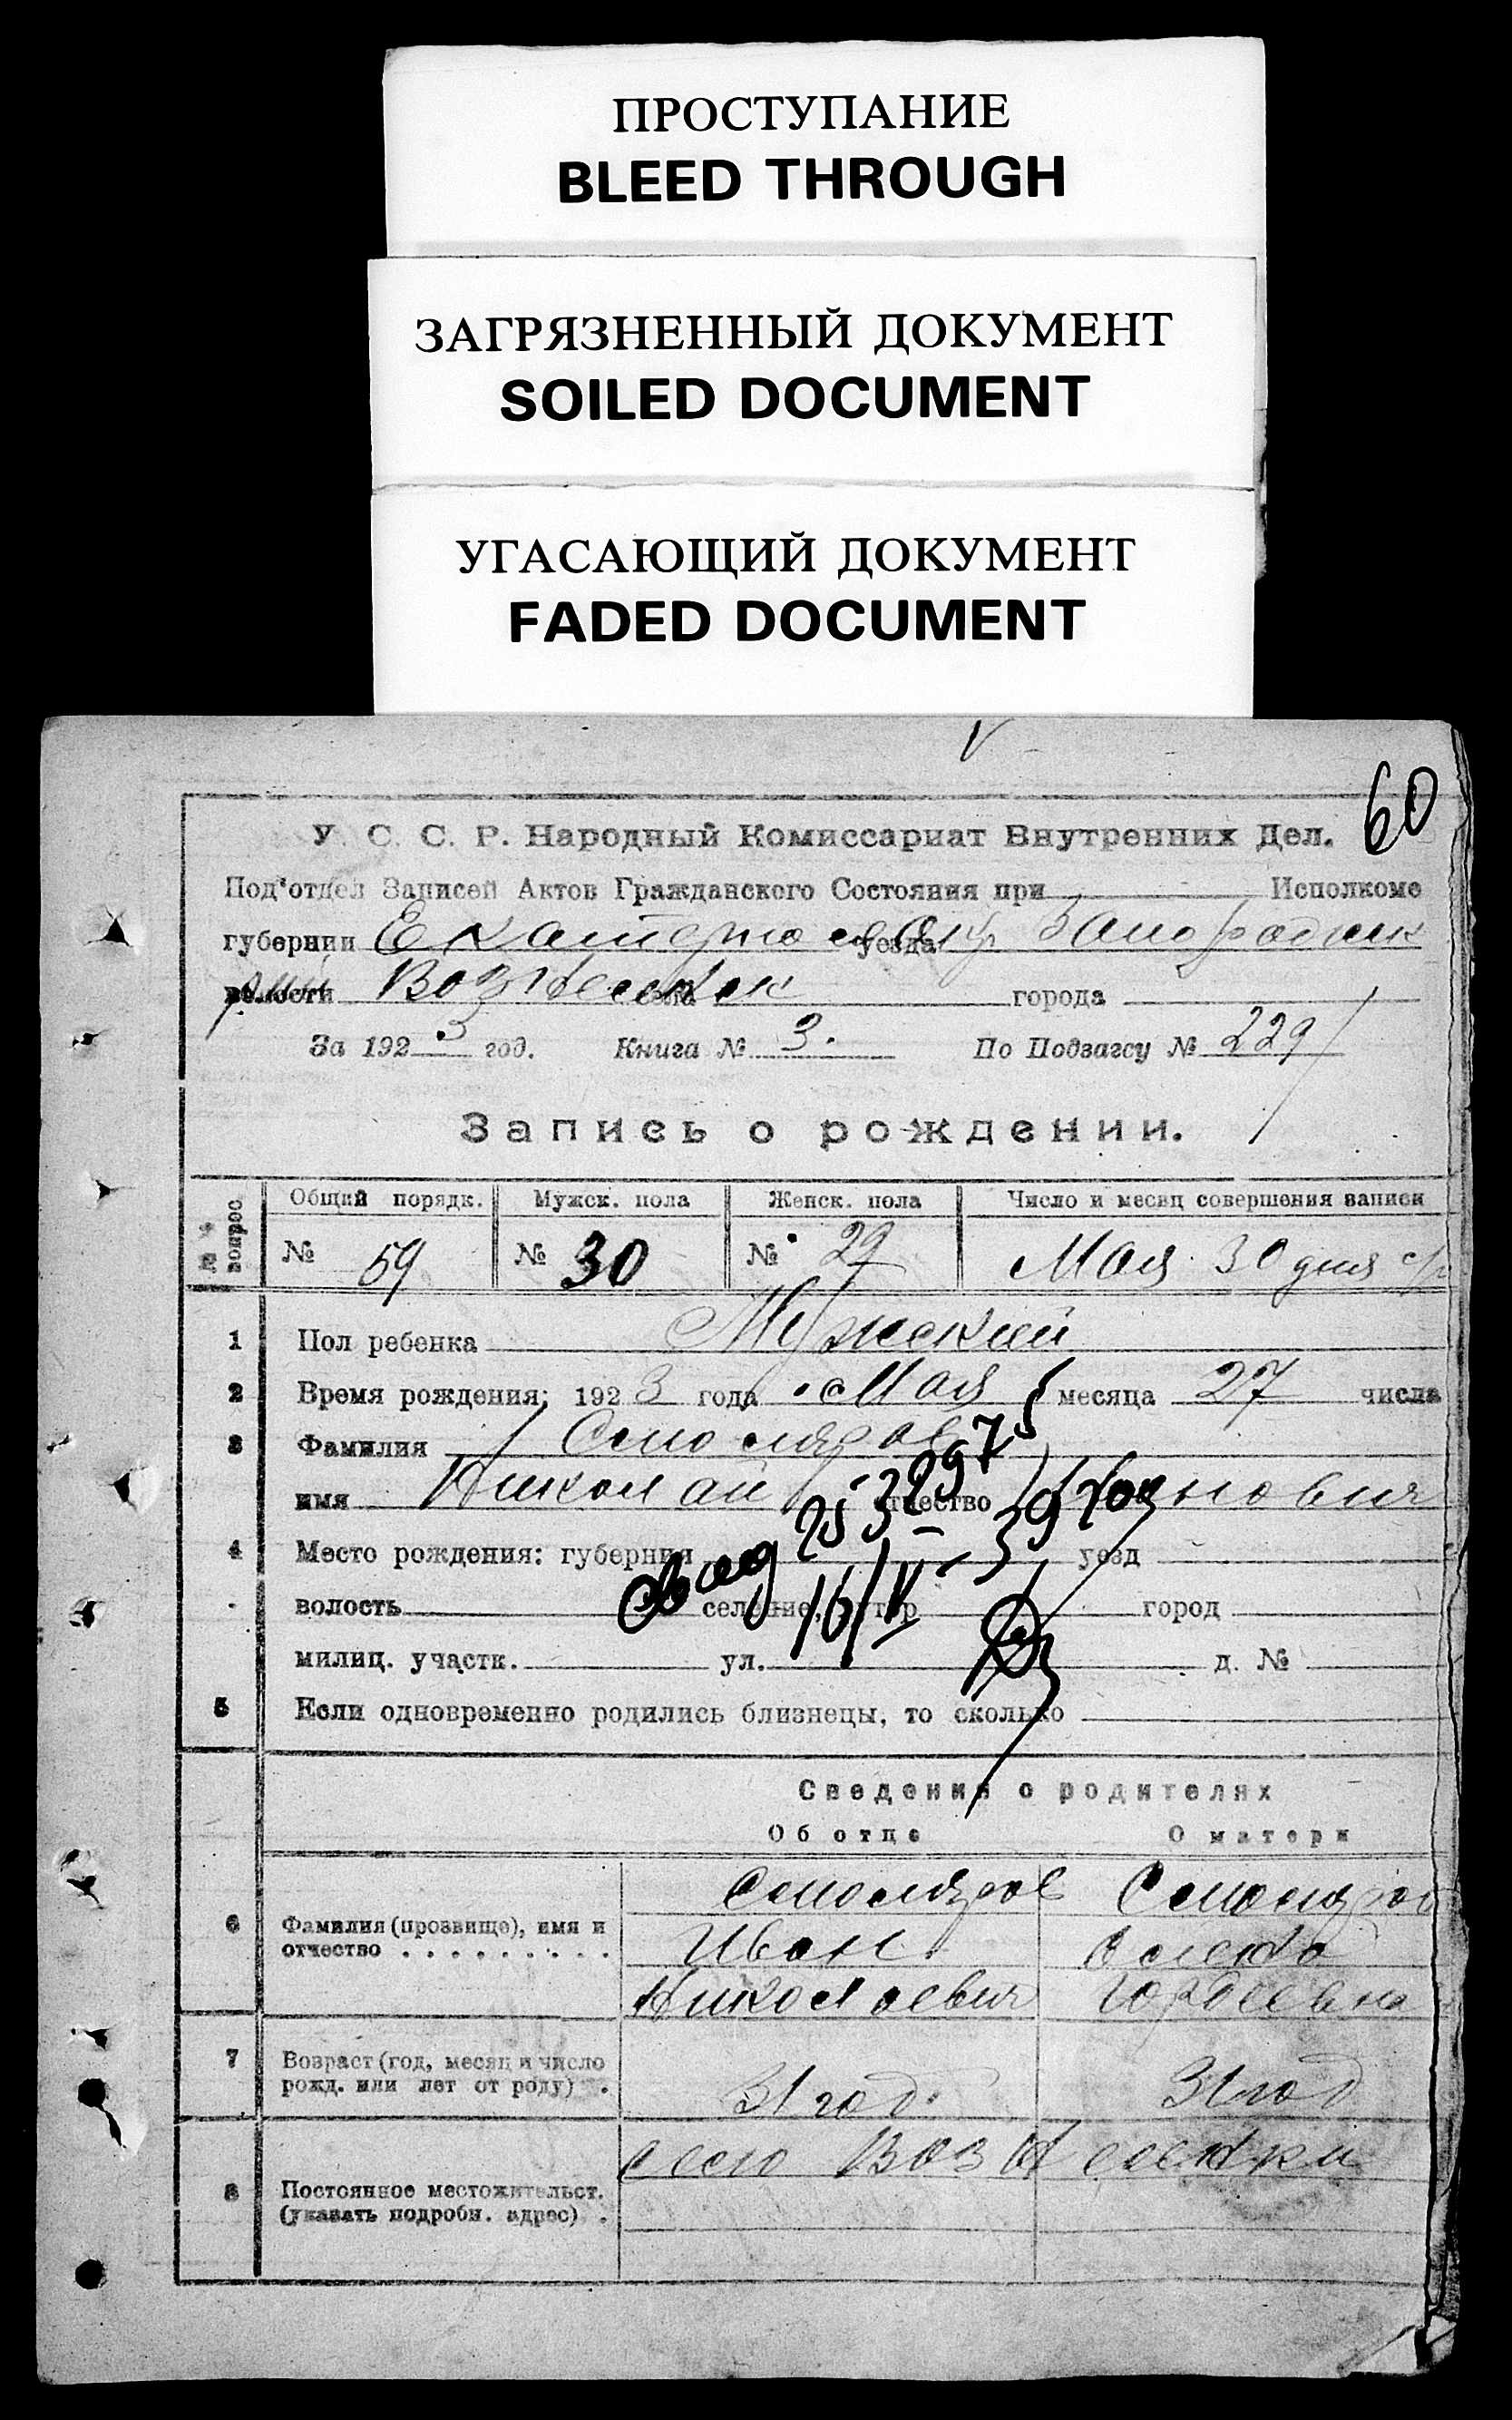 ПРОСТУПАНИЕ
BLEED THROUGH
ЗАГРЯЗНЕННЫЙ ДОКУМЕНТ
SOILED DOCUMENT
УГАСАЮЩИЙ ДОКУМЕНТ
FADED DOCUMENT
V
60
У. С. С. Р. Народный Комиссариат Внутренних Дел.
Под'отдел Записей Актов Гражданского Состояния при Исполкоме
губернии уезда
волости Вознесенск села города
За 1923 год. Книга № 3. По Подзагсу № 229
Запись о рождении.
№№ вопрос Общий порядк. Мужск. пола Женск. пола Число и месяц совершения записи
№ 59 № 30 № 29 Мая 30 дня
1 Пол ребенка Мужский
2 Время рождения: 1923 года Мая месяца 27 числа
3 Фамилия Столяров
имя Николай отчество Иванович
4 Место рождения: губерния уезд
волость селение, хутор город
милиц. участк. ул. д. №
5 Если одновременно родились близнецы, то сколько
16/V-39
Сведения о родителях
Об отце О матери
6 Фамилия (прозвище), имя и отчество Столяров Столяров
Иван Елена
Николаевич Гордеевна
7 Возраст (год, месяц и число рожд. или лет от роду) 31 год. 31 год
8 Постоянное местожительст. (указать подробн. адрес) село Вознесенки